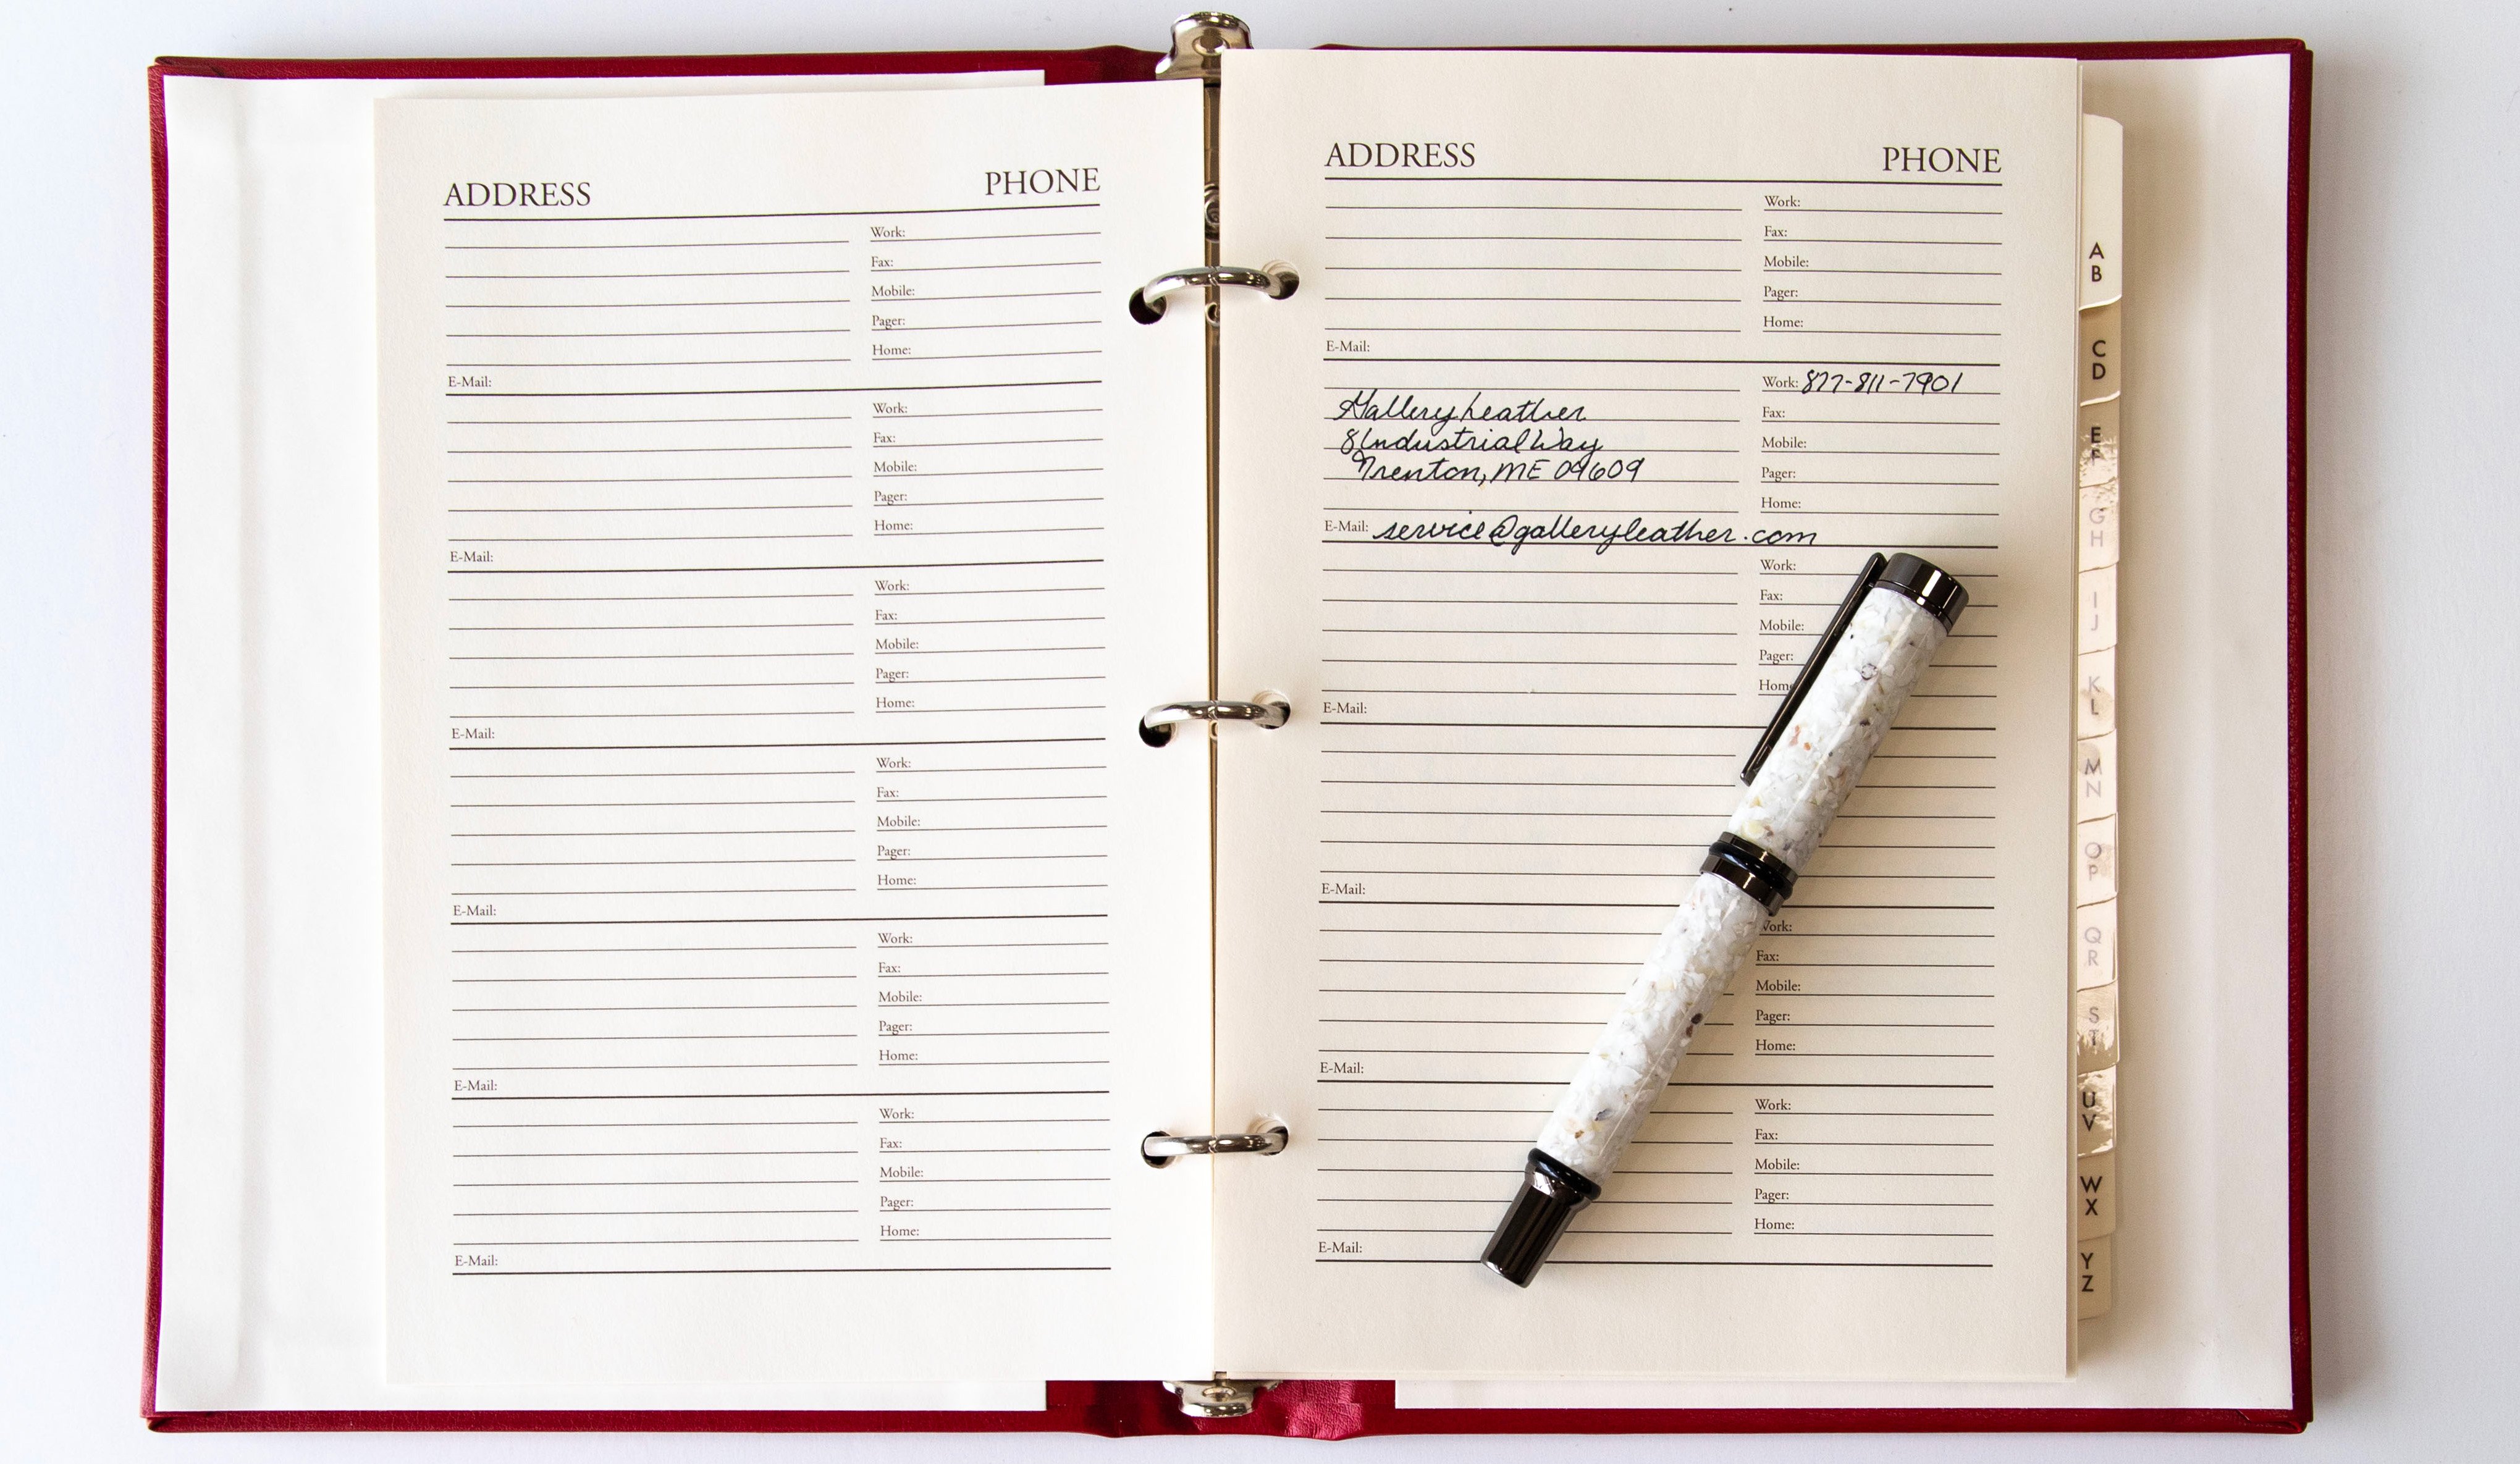 ADDRESS PHONE
Work:
Fax:
Mobile:
Pager:
Home:
E-Mail:
Work:
Fax:
Mobile:
Pager:
Home:
E-Mail:
Work:
Fax:
Mobile:
Pager:
Home:
E-Mail:
Work:
Fax:
Mobile:
Pager:
Home:
E-Mail:
Work:
Fax:
Mobile:
Pager:
Home:
E-Mail:
Work:
Fax:
Mobile:
Pager:
Home:
E-Mail:
ADDRESS PHONE
Work:
Fax:
Mobile:
Pager:
Home:
E-Mail:
Work: 877-811-7901
Gallery Leather
Fax:
8 Industrial Way
Mobile:
Trenton, ME 04609
Pager:
Home:
E-Mail: service@galleryleather.com
Work:
Fax:
Mobile:
Pager:
Home
E-Mail:
E-Mail:
Work:
Fax:
Mobile:
Pager:
Home:
E-Mail:
Work:
Fax:
Mobile:
Pager:
Home:
E-Mail:
A
B
C
D
E
F
G
H
I
J
K
L
M
N
O
P
Q
R
S
T
U
V
W
X
Y
Z